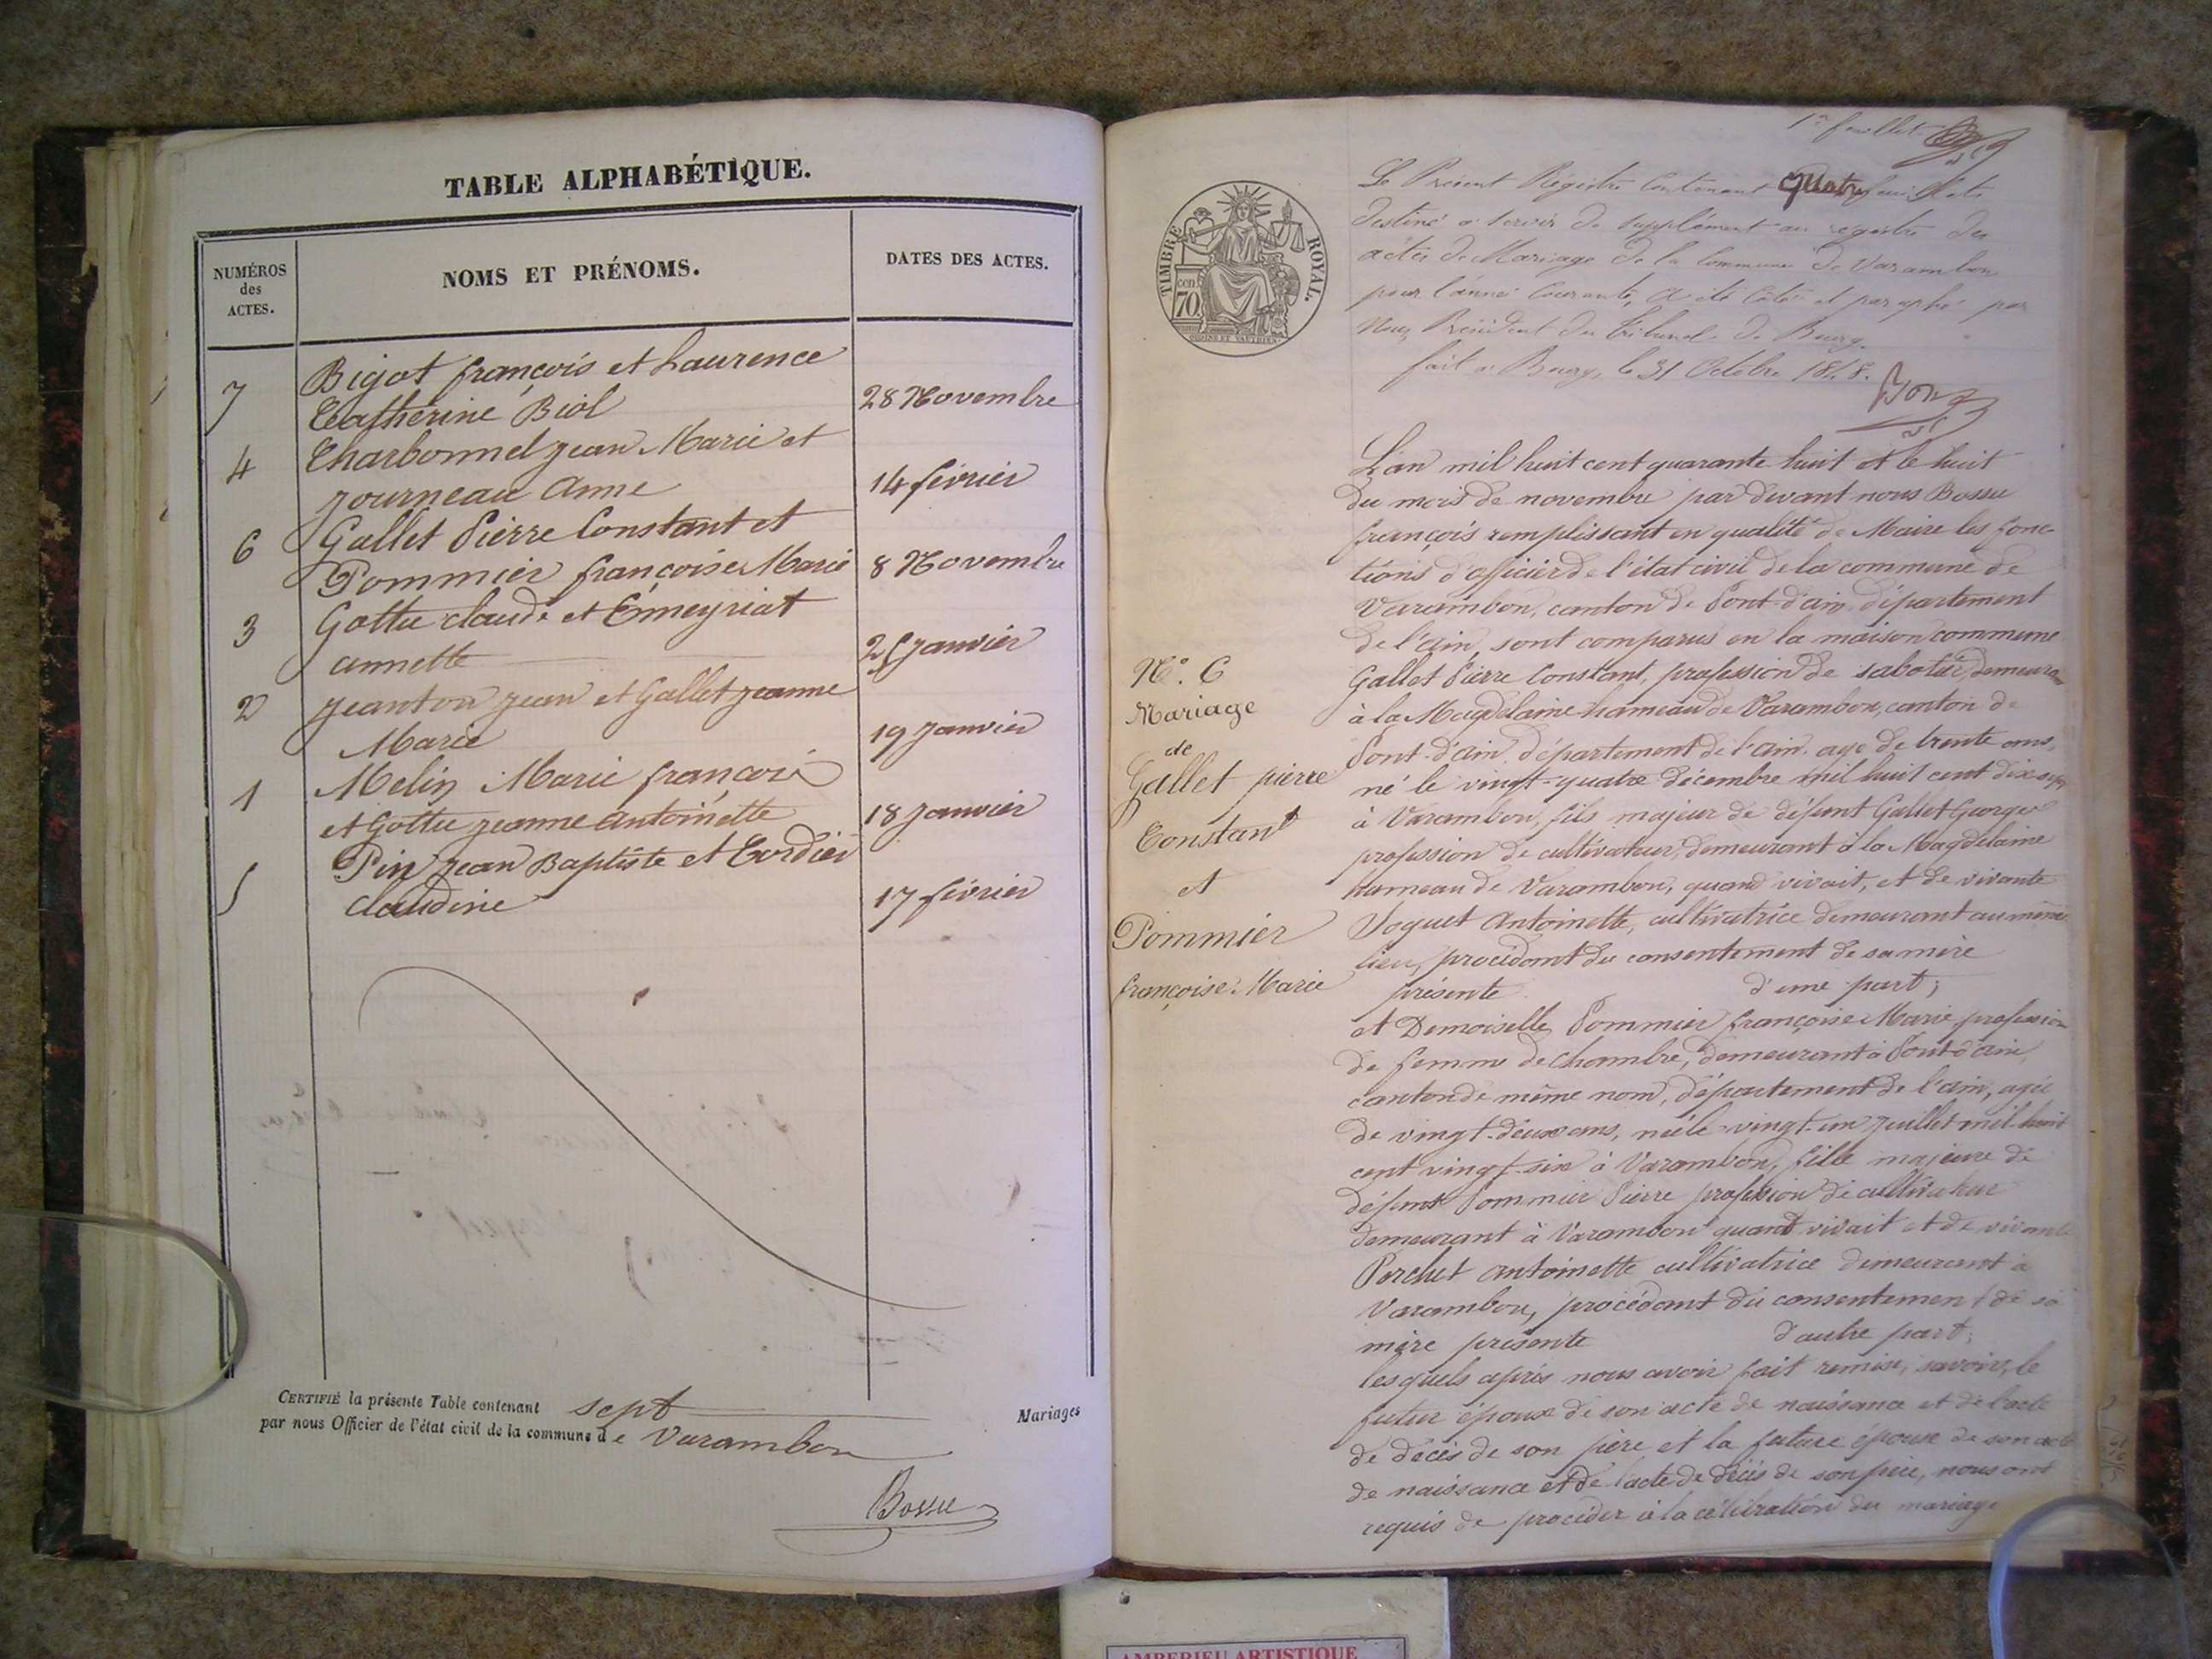 TABLE ALPHABÉTIQUE.
NUMÉROS
des
ACTES.
NOMS ET PRÉNOMS.
DATES DES ACTES.
7 Bigot françois et Laurence
Catherine Biol 28 Novembre
4 Charbonnel jean Marie et
journeau Anne 14 février
6 Gallet Pierre Constant et
Pommier françoise Marie 8 Novembre
3 Gottu claude et Emeyriat
annette 25 janvier
2 jeanton jean et Gallet jeanne
Marie 19 janvier
1 Melin Marie françois
et Gottu jeanne antoinette 18 janvier
5 Pin jean Baptiste et Cordier
claudine 17 février
CERTIFIÉ la présente Table contenant sept Mariages
par nous Officier de l'état civil de la commune de Varambon
Bossu
1er feuillet
TIMBRE ROYAL.
70 cen
Le Présent Régistre Contenant quatre feuillets
destiné a servir de supplément au registre des
actes de Mariage de la Commune de Varambon
pour l'année Courante, a été Coté et paraphé par
Nous, Président du tribunal de Bourg.
fait a Bourg, le 31 Octobre 1848.
L'an mil huit cent quarante huit et le huit
du mois de novembre par devant nous Bossu
françois remplissant en qualité de Maire les fonc-
tions d'officier de l'état civil de la commune de
Varambon, canton de Pont-d'ain, département
de l'ain, sont comparus en la maison commune
Gallet Pierre Constant, profession de sabotier, demeurant
à la Magdelaine hameau de Varambon, canton de
Pont-d'ain, département de l'ain, agé de trente ans,
né le vingt-quatre décembre mil huit cent dix sept
à Varambon, fils majeur de défunt Gallet George
profession de cultivateur, demeurant à la Magdelaine
hameau de Varambon, quand vivait, et de vivante
Joguet Antoinette, cultivatrice demeurant au même
lieu, procédant du consentement de sa mère
présente d'une part;
et Demoiselle Pommier françoise Marie, profession
de femme de chambre, demeurant à Pont d'ain,
canton de même nom, département de l'ain, agée
de vingt-deux ans, née le vingt-un juillet mil huit
cent vingt-six à Varambon, fille majeure de
défunt Pommier Pierre profession de cultivateur
demeurant à Varambon quand vivait et de vivante
Perchet antoinette cultivatrice demeurant à
Varambon, procédant du consentement de sa
mère présente d'autre part;
lesquels après nous avoir fait remise, savoir, le
futur époux de son acte de naissance et de l'acte
de décès de son père et la future épouse de son acte
de naissance et de l'acte de décès de son père, nous ont
requis de procéder à la célébration du mariage
N.º 6
Mariage
de
Gallet pierre
Constant
et
Pommier
françoise Marie
AMBERIEU ARTISTIQUE